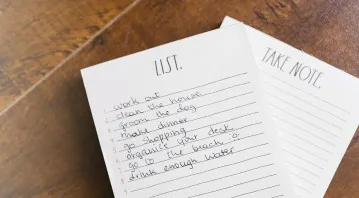 LIST.
1. work out
2. clean the house
3. groom the dog
4. make dinner
5. go shopping
6. organise your desk
7. go to the beach
8. drink enough water
TAKE NOTE.